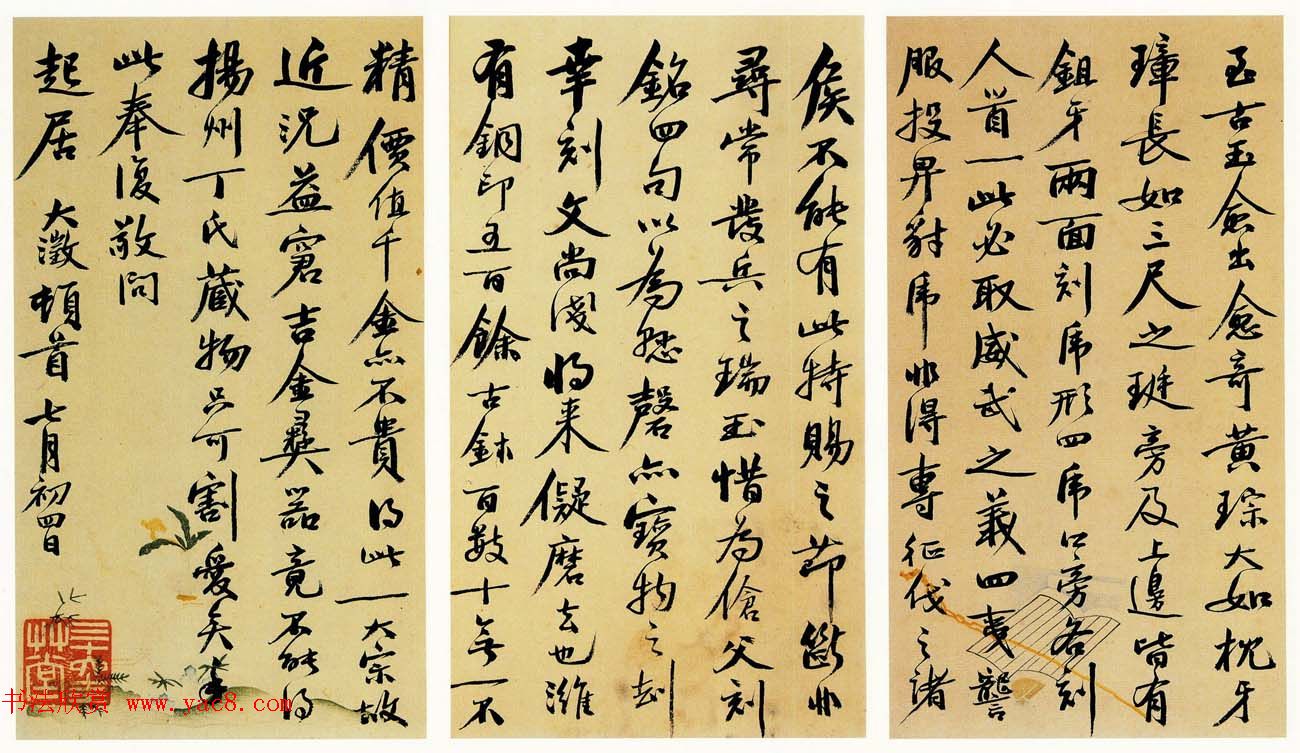 玉古玉愈出愈奇黃琮大如枕牙
璋長如三尺之珽旁及上邊皆有
鉏牙兩面刻虎形四虎口旁各刻
人首一此必取威武之義四夷讋
服投畀豺虎非得專征伐之諸
侯不能有此特賜之節斷非
尋常發兵之瑞玉惜為傖父刻
銘四句以為懸磬亦寶物之刼
幸刻文尚淺將來儗磨去也濰
有銅印五百餘古鉥百數十無一不
精價值千金亦不貴得此一大宗故
近況益窘吉金彝器竟不能得
揚州丁氏藏物只可割愛矣手
此奉復敬問
起居 大澂頓首 七月初四日
书法欣赏 www.yac8.com